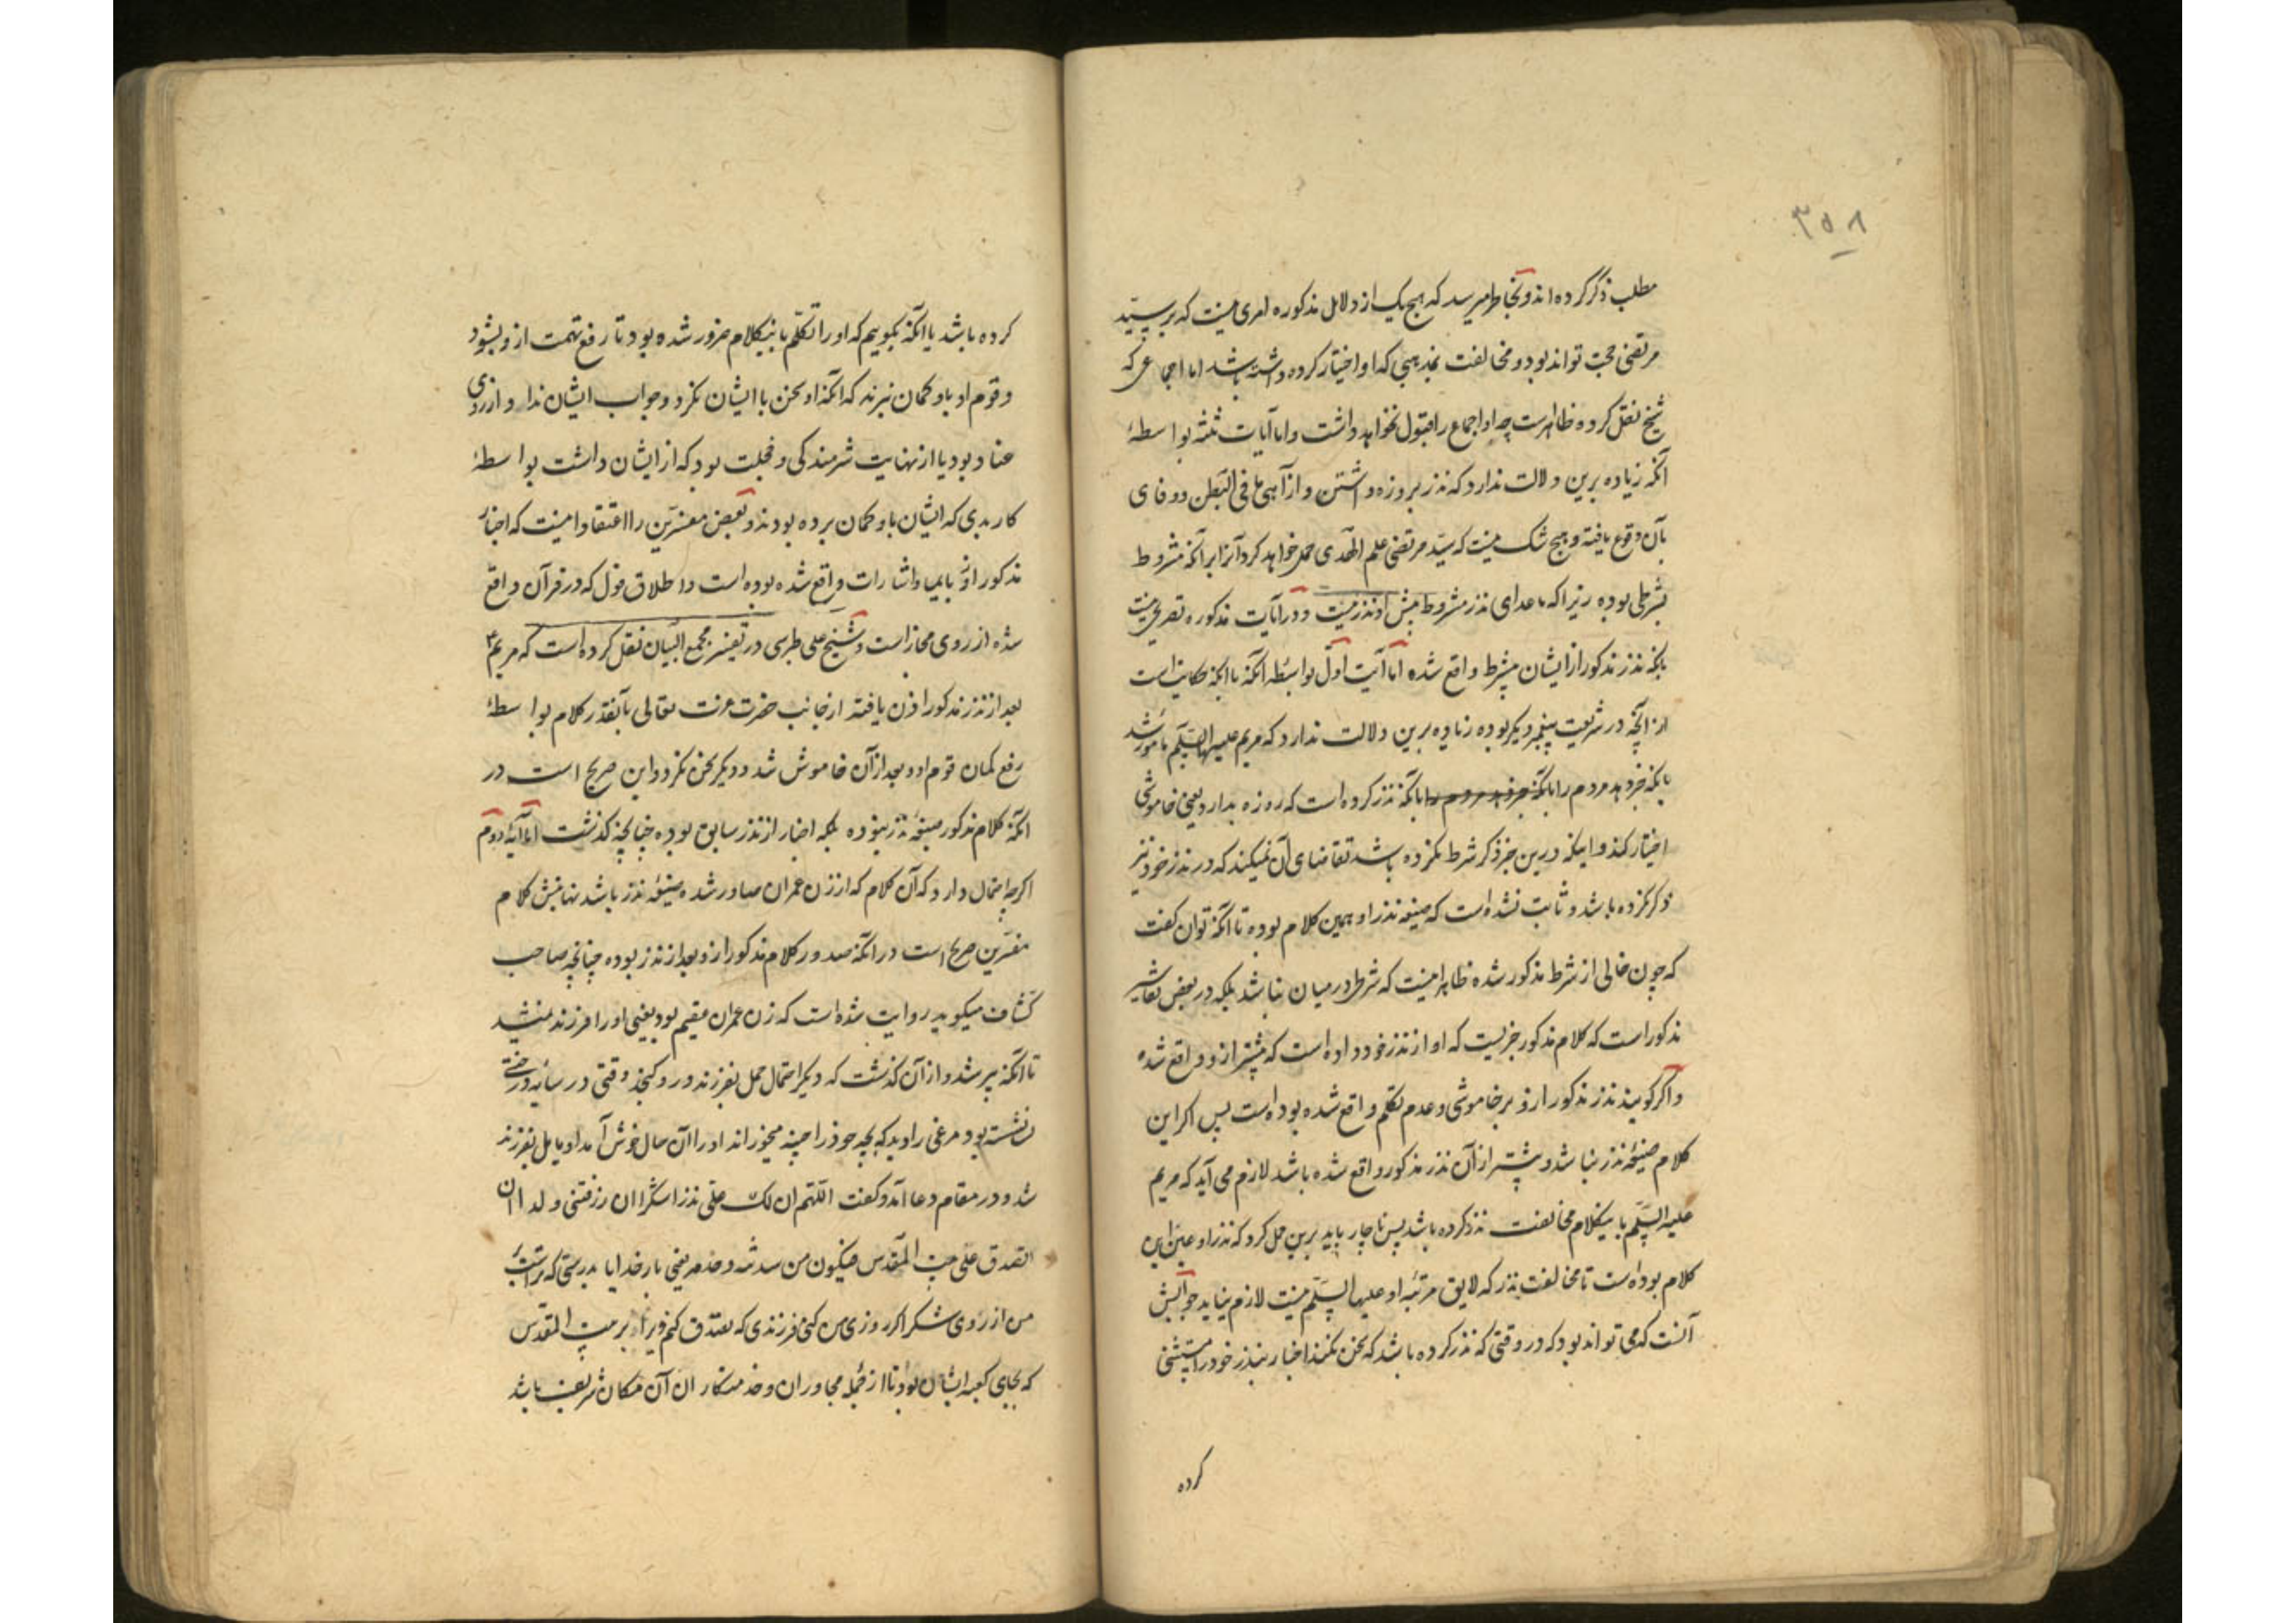 ۳۵۸
مطلب ذکر کرده‌اند و بخاطر میرسد که هیچ یک از دلایل مذکوره امری نیست که بر سیّد
مرتضی حجت تواند بود و مخالفت بمذهبی که او اختیار کرده داشته باشد اما اجماعی که
شیخ نقل کرده ظاهرست چه او اجماع را قبول نخواهد داشت و اما آیات ثلثه بواسطهٔ
آنکه زیاده برین دلالت ندارد که نذر بروزه داشتن و از آهی ما فی البطن و وفای
بآن وقوع یافته و هیچ شک نیست که سیّد مرتضی علم الهدی حمل خواهد کرد آنرا بر آنکه مشروط
بشرطی بوده زیرا که ماعدای نذر مشروط پیش او نذر نیست و در آیات مذکوره تصریح نیست
بآنکه نذر مذکور از ایشان بیشرط واقع شده اما آیت اول بواسطهٔ آنکه با آنکه حکایت است
از آنچه در شریعت پیغمبر دیگر بوده زیاده برین دلالت ندارد که مریم علیها السّلم مامور شد
بآنکه خبر دهد مردم را بآنکه خبر دهد مردم را بآنکه نذر کرده است که روزه بدارد یعنی خاموشی
اختیار کند و اینکه درین خبر ذکر شرط نکرده باشد تقاضای آن نمیکند که در نذر خود نیز
ذکر نکرده باشد و ثابت نشده است که صیغه نذر او همین کلام بوده تا آنکه توان گفت
که چون خالی از شرط مذکور شده ظاهر اینست که شرط در میان نباشد بلکه در بعض تفاسیر
مذکور است که کلام مذکور خبریست که او از نذر خود داده است که پیشتر ازو واقع شده
و اگر گویند نذر مذکور ازو بر خاموشی و عدم تکلم واقع شده بوده است پس اگر این
کلام صیغهٔ نذر نباشد و پیشتر از آن نذر مذکور واقع شده باشد لازم می آید که مریم
علیها السّلم باینکلام مخالفت نذر کرده باشد پس ناچار باید برین حمل کرد که نذر او عین این
کلام بوده است تا مخالفت نذر که لایق مرتبه او علیها السّلم نیست لازم نیاید جوابش
آنست که می تواند بود که در وقتی که نذر کرده باشد که سخن نکند اخبار بنذر خود را مستثنی
کرده
کرده باشد یا آنکه بگوییم که او را تکلّم باینکلام ضرور شده بود تا رفع تهمت ازو بشود
و قوم او باو گمان نبرند که آنکه او سخن با ایشان نکرد و جواب ایشان نداد از روی
عناد بود یا از نهایت شرمندگی و خجلت بود که از ایشان داشت بواسطهٔ
کار بدی که ایشان باو گمان برده بودند و بعض مفسّرین را اعتقاد اینست که اخبار
مذکور ازو بایما و اشارات واقع شده بوده است و اطلاق قول که در قرآن واقع
شده از روی مجاز است و شیخ علی طبرسی در تفسیر مجمع البیان نقل کرده است که مریم ع
بعد از نذر مذکور اذن یافته از جانب حضرت عزت تعالی بآنقدر کلام بواسطهٔ
رفع گمان قوم او و بعد از آن خاموش شد و دیگر سخن نکرد و این صریح است در
آنکه کلام مذکور صیغهٔ نذر نبوده بلکه اخبار از نذر سابق بوده چنانچه گذشت اما آیهٔ دوم
اگرچه احتمال دارد که آن کلام که از زن عمران صادر شده صیغهٔ نذر باشد نهایتش کلام
مفسّرین صریح است در آنکه صدور کلام مذکور ازو بعد از نذر بوده چنانچه صاحب
کشاف میگوید روایت شده است که زن عمران عقیم بود یعنی او را فرزند نمیشد
تا آنکه پیر شد و از آن گذشت که دیگر احتمال حمل بفرزند در و گنجد وقتی در سایه درختی
نشسته بود مرغی را دید که بچه خود را چینه میخوراند او را آن حال خوش آمد او مایل بفرزند
شد و در مقام دعا آمد و گفت اللّهم ان لک علیّ نذرا شکرا ان رزقتنی ولدا ان
اتصدق علی بیت المقدس فیکون من سدنته و خدمه یعنی بار خدایا بدرستی که تراست
من از روی شکر اگر روزی من کنی فرزندی که تصدق کنم ویرا بر بیت المقدس
که بجای کعبه ایشان بود تا از جمله مجاوران و خدمتکاران آن مکان شریف باشد